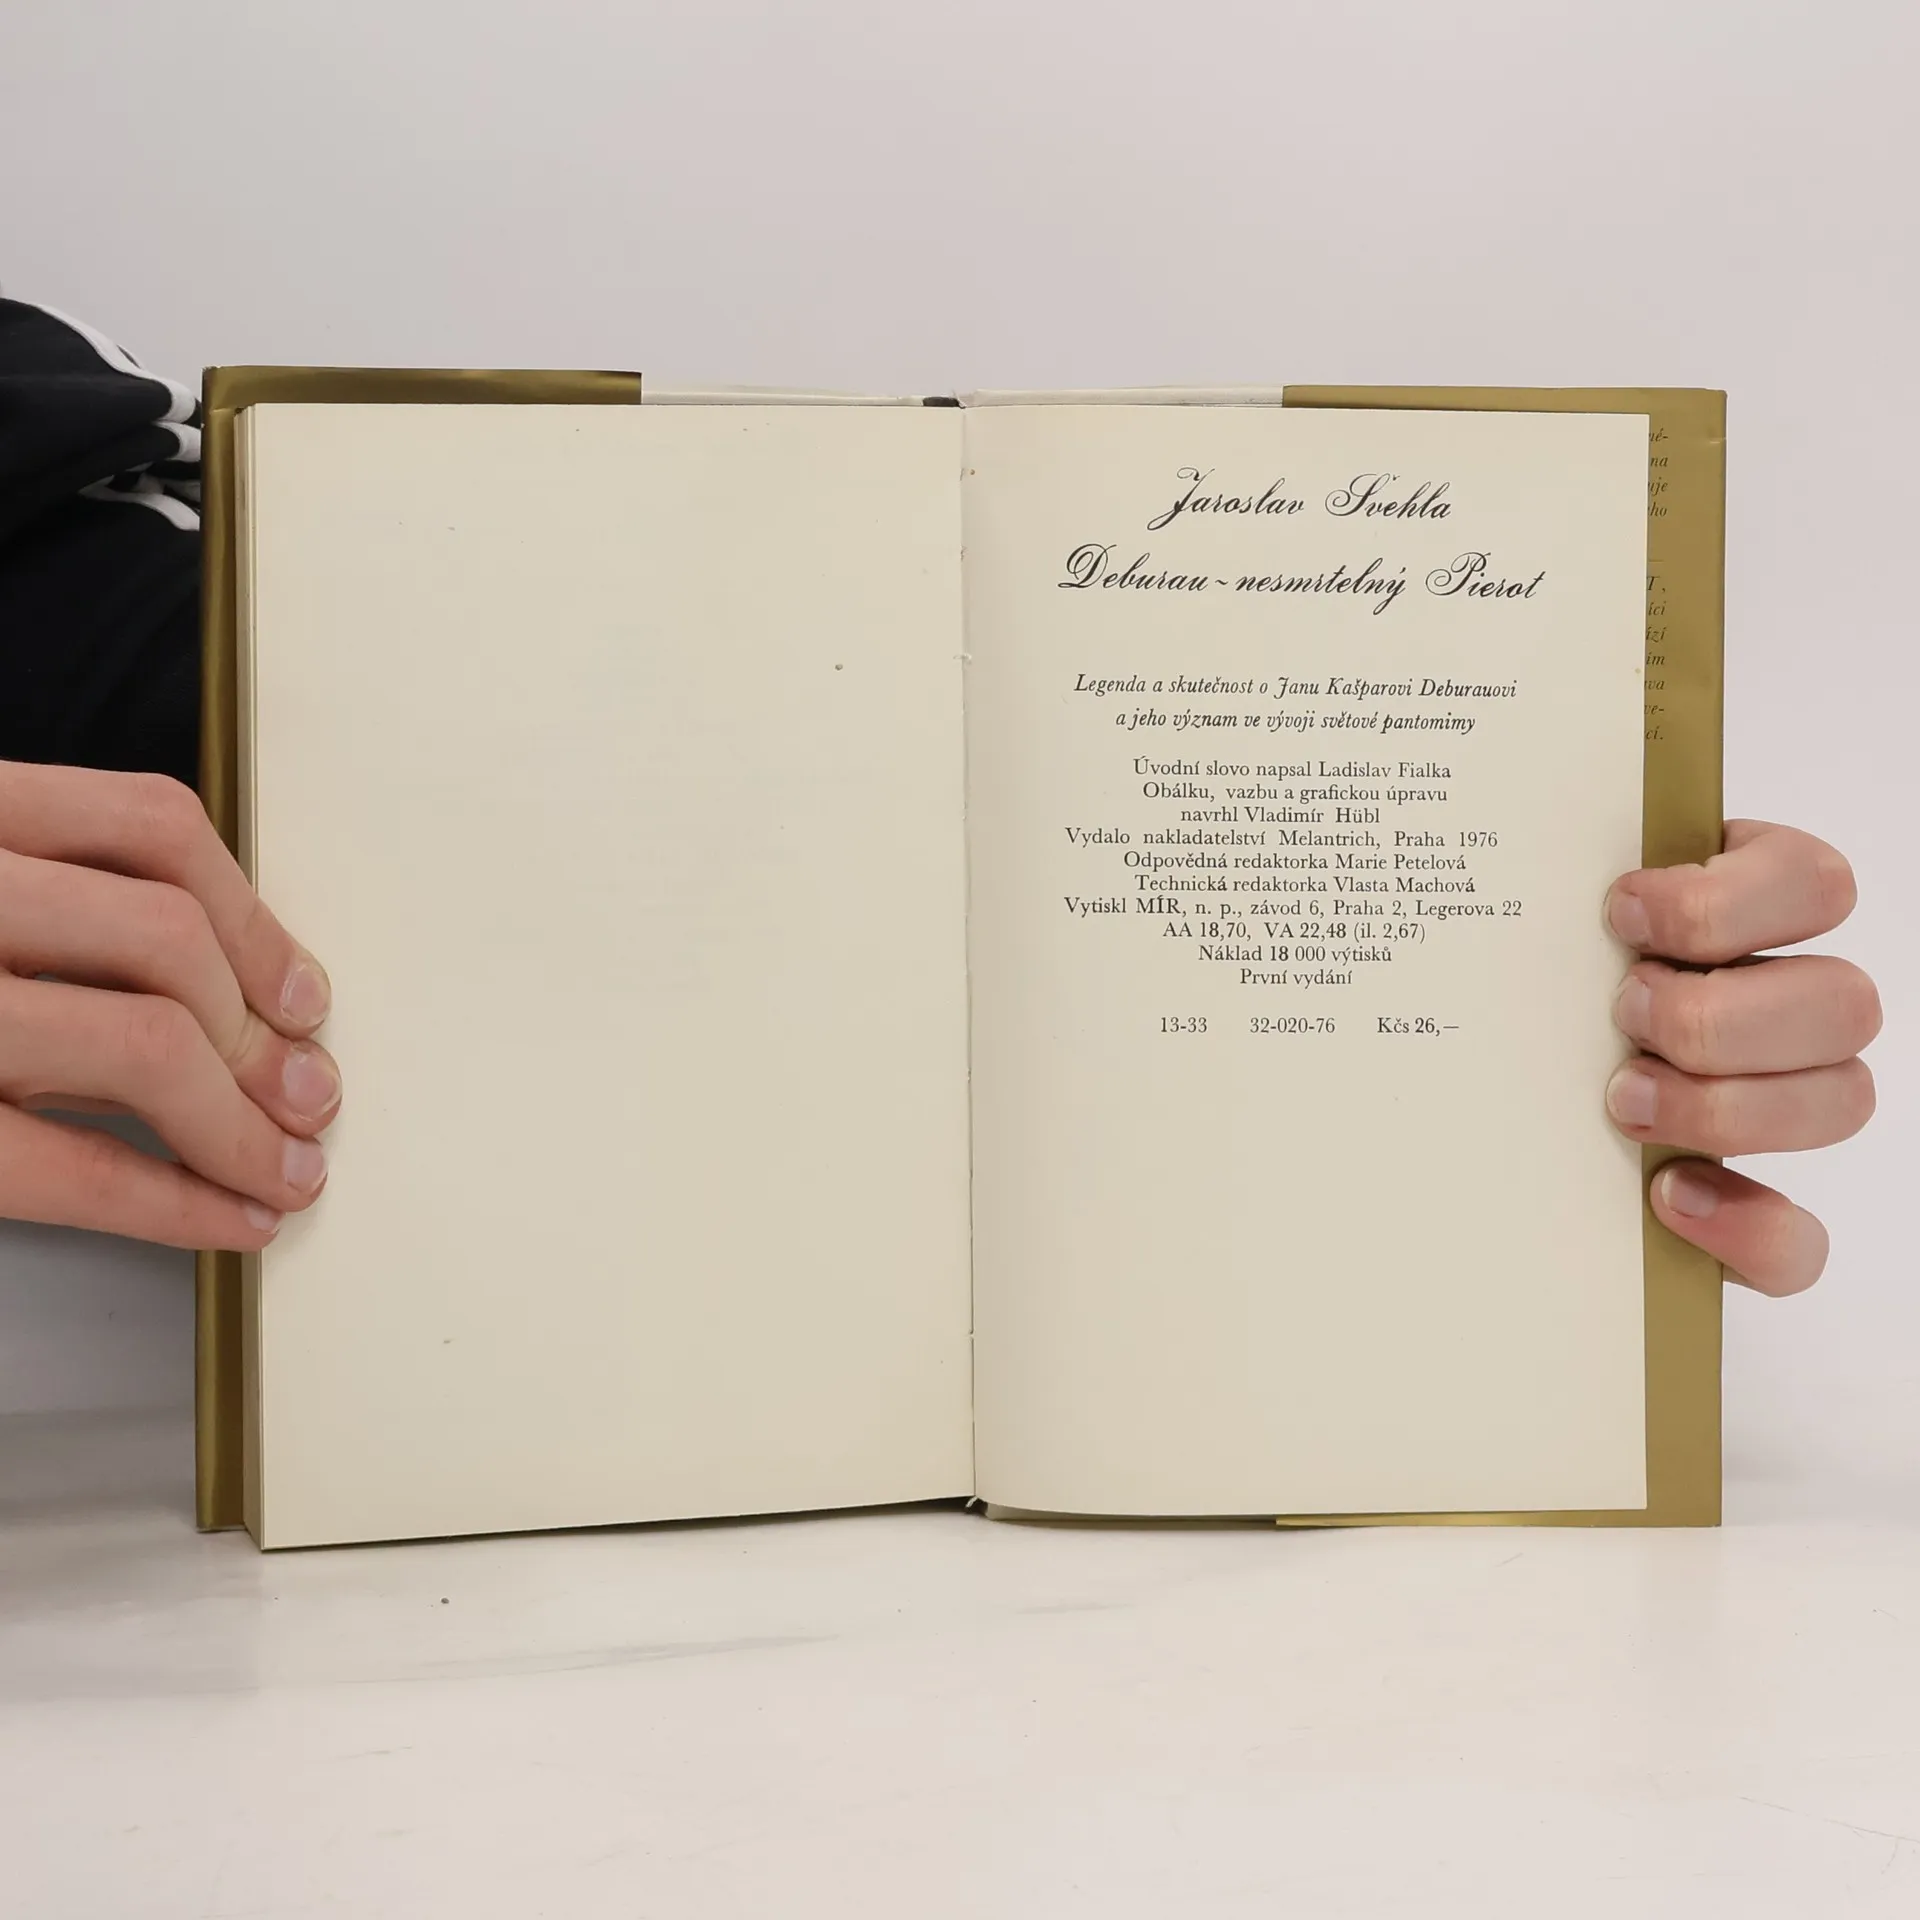 Jaroslav Švehla
Deburau ~ nesmrtelný Pierot
Legenda a skutečnost o Janu Kašparovi Deburauovi
a jeho význam ve vývoji světové pantomimy
Úvodní slovo napsal Ladislav Fialka
Obálku, vazbu a grafickou úpravu
navrhl Vladimír Hübl
Vydalo nakladatelství Melantrich, Praha 1976
Odpovědná redaktorka Marie Petelová
Technická redaktorka Vlasta Machová
Vytiskl MÍR, n. p., závod 6, Praha 2, Legerova 22
AA 18,70, VA 22,48 (il. 2,67)
Náklad 18 000 výtisků
První vydání
13-33 32-020-76 Kčs 26,—